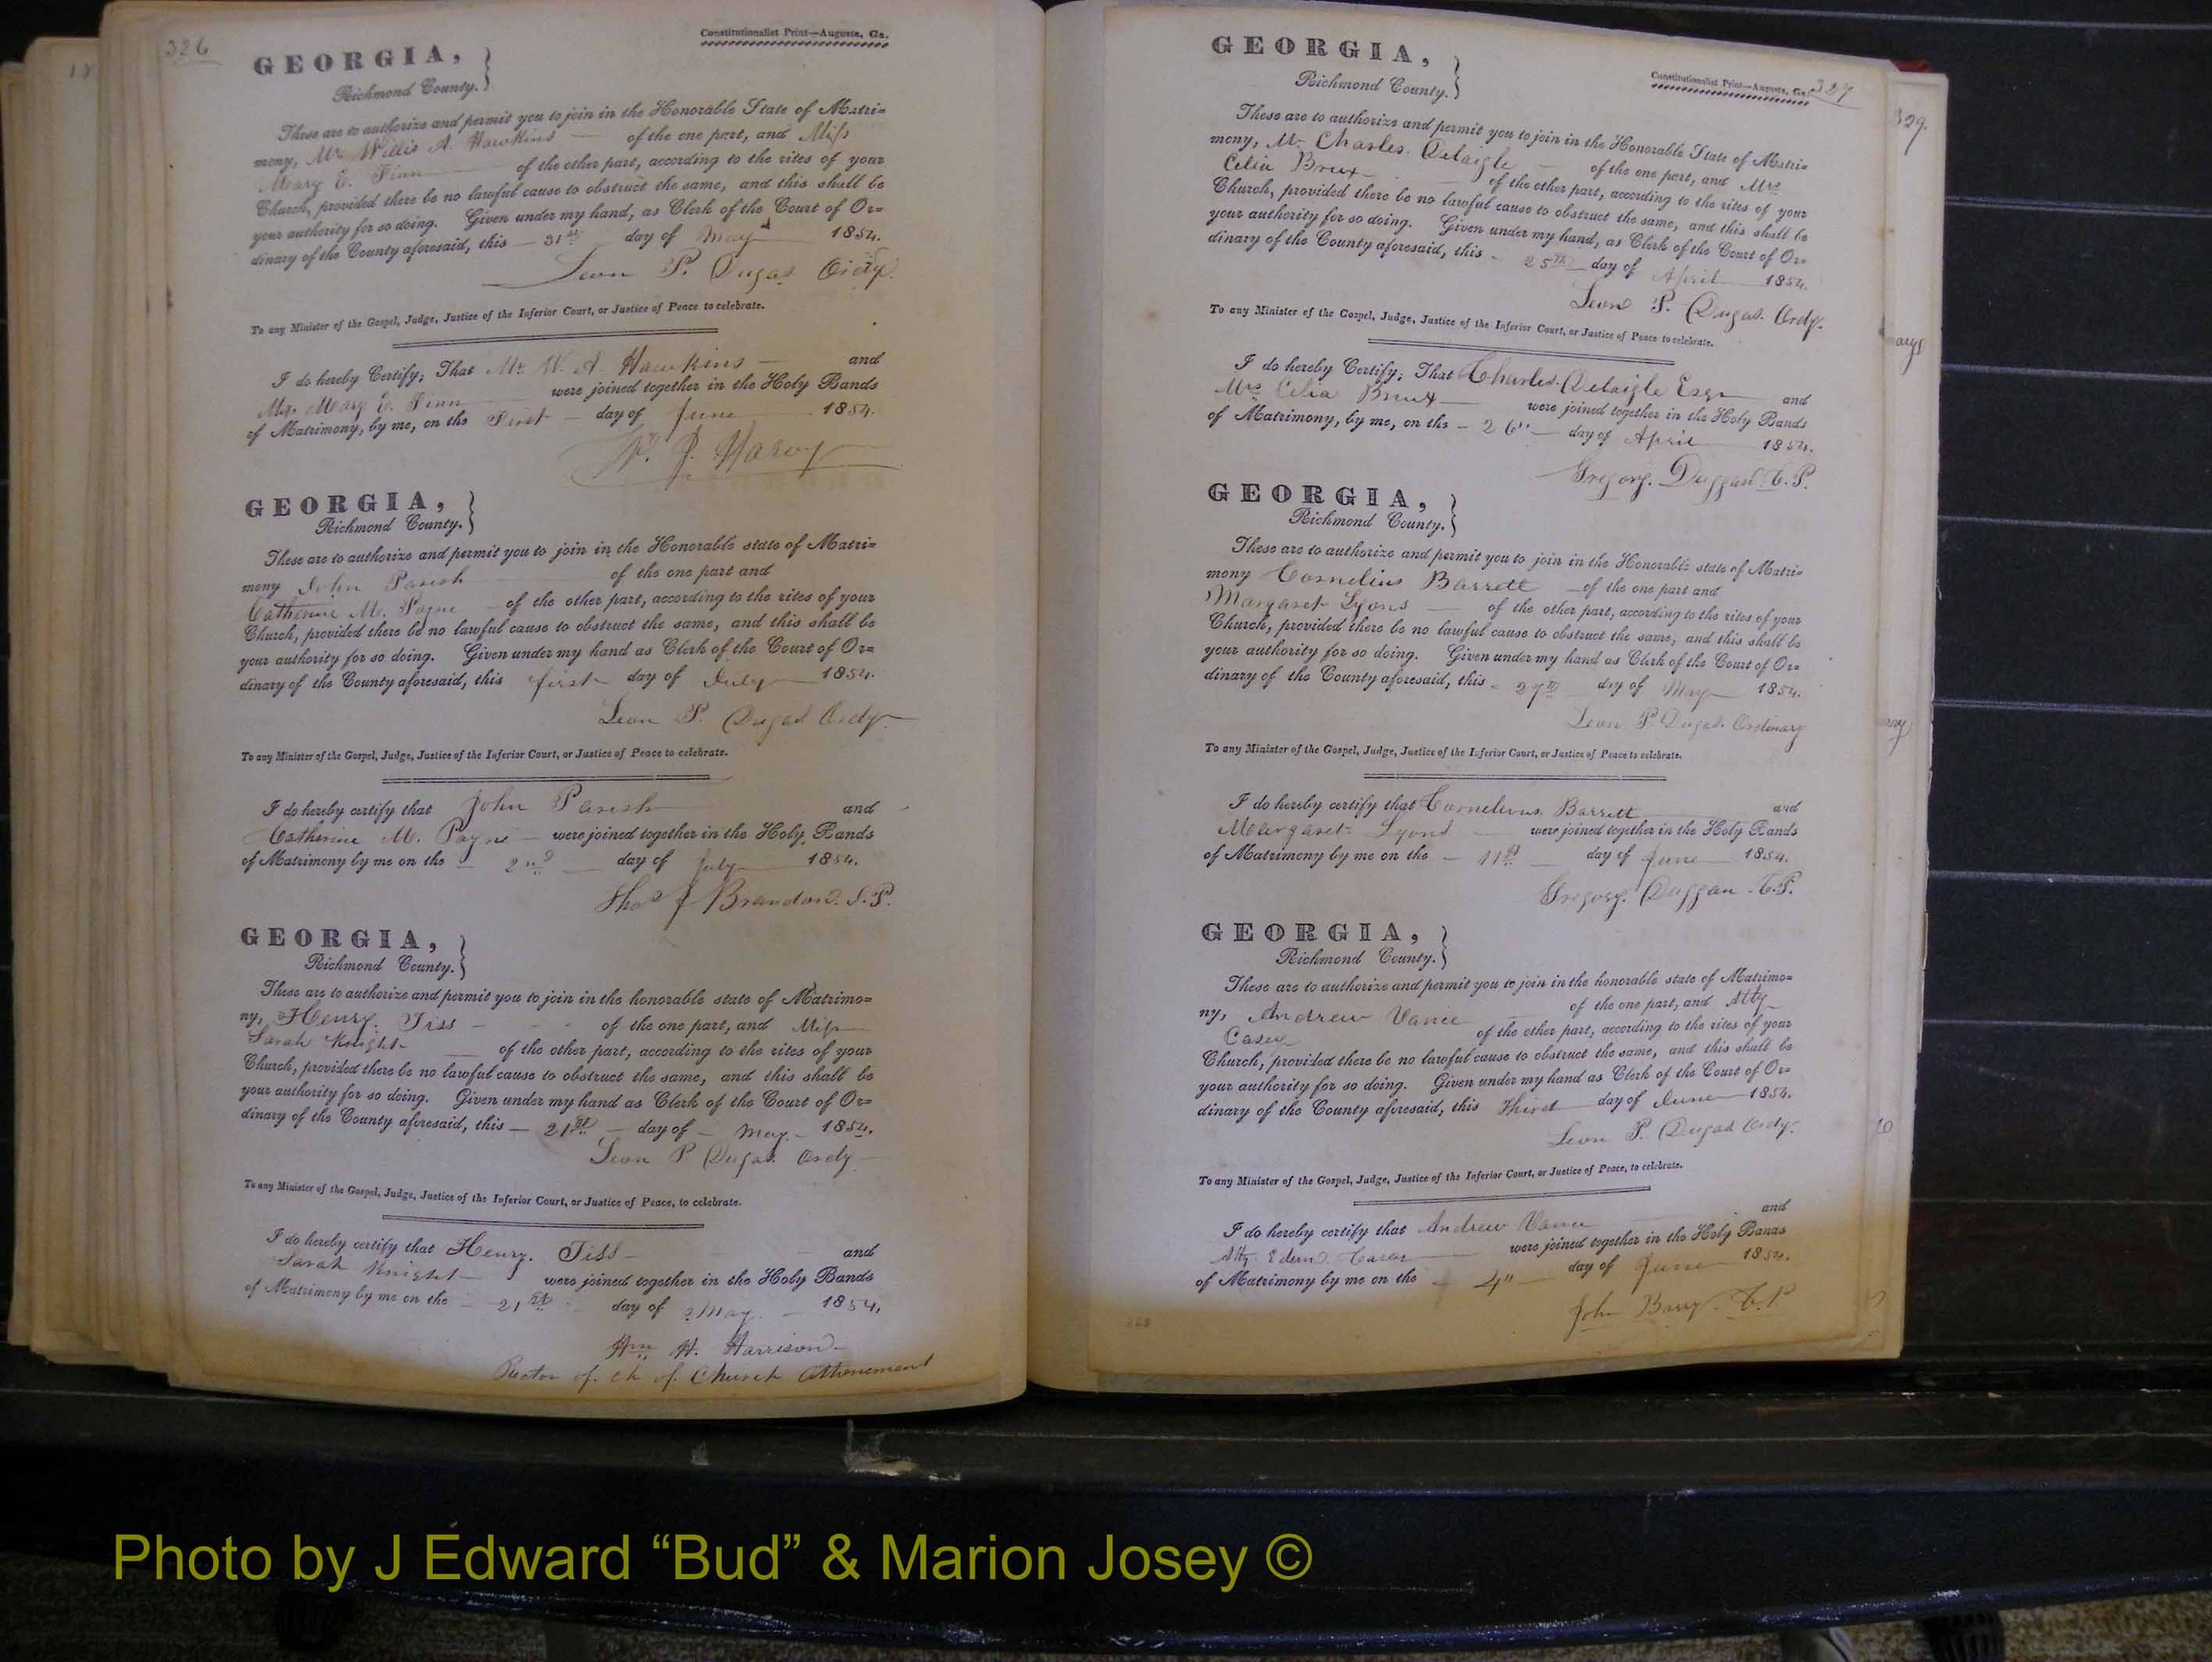 326
Constitutionalist Print—Augusta, Ga.
GEORGIA,
Richmond County.
These are to authorize and permit you to join in the Honorable State of Matri=
mony, Mr Willis A. Hawkins of the one part, and Miss
Mary E. Finn of the other part, according to the rites of your
Church, provided there be no lawful cause to obstruct the same, and this shall be
your authority for so doing. Given under my hand, as Clerk of the Court of Or=
dinary of the County aforesaid, this 31st day of May 1854.
Leon P. Dugas Ordy.
To any Minister of the Gospel, Judge, Justice of the Inferior Court, or Justice of Peace to celebrate.
I do hereby Certify; That Mr. W. A. Hawkins and
Mary E. Finn were joined together in the Holy Bands
of Matrimony, by me, on the First day of June 1854.
GEORGIA,
Richmond County.
These are to authorize and permit you to join in the Honorable state of Matri=
mony John Parish of the one part and
Catherine M. Payne of the other part, according to the rites of your
Church, provided there be no lawful cause to obstruct the same, and this shall be
your authority for so doing. Given under my hand as Clerk of the Court of Or=
dinary of the County aforesaid, this first day of July 1854.
Leon P. Dugas Ordy.
To any Minister of the Gospel, Judge, Justice of the Inferior Court, or Justice of Peace to celebrate.
I do hereby certify that John Parish and
Catherine M. Payne were joined together in the Holy Bands
of Matrimony by me on the 2nd day of July 1854.
Thos J Brandon. J.P.
GEORGIA,
Richmond County.
These are to authorize and permit you to join in the honorable state of Matrimo=
ny, Henry. Tiss of the one part, and Miss
Sarah Knight of the other part, according to the rites of your
Church, provided there be no lawful cause to obstruct the same, and this shall be
your authority for so doing. Given under my hand as Clerk of the Court of Or=
dinary of the County aforesaid, this 21st day of May 1854.
Leon P. Dugas. Ordy
To any Minister of the Gospel, Judge, Justice of the Inferior Court, or Justice of Peace, to celebrate.
I do hereby certify that Henry. Tiss and
Sarah Knight were joined together in the Holy Bands
of Matrimony by me on the 21st day of May 1854,
Wm H. Harrison
Rector of. ch of. Church Attonement
Constitutionalist Print—Augusta, Ga.
327
GEORGIA,
Richmond County.
These are to authorize and permit you to join in the Honorable State of Matri=
mony, Mr Charles. Delaigle of the one part, and Mrs
Celia Brux of the other part, according to the rites of your
Church, provided there be no lawful cause to obstruct the same, and this shall be
your authority for so doing. Given under my hand, as Clerk of the Court of Or=
dinary of the County aforesaid, this 25th day of April 1854.
Leon P. Dugas. Ordy.
To any Minister of the Gospel, Judge, Justice of the Inferior Court, or Justice of Peace to celebrate.
I do hereby Certify; That Charles. Delaigle Esqr and
Mrs Celia Brux were joined together in the Holy Bands
of Matrimony, by me, on the 26" day of April 1854.
Gregory. Duggan C.P.
GEORGIA,
Richmond County.
These are to authorize and permit you to join in the Honorable state of Matri=
mony Cornelius Barrett of the one part and
Margaret Lyons of the other part, according to the rites of your
Church, provided there be no lawful cause to obstruct the same, and this shall be
your authority for so doing. Given under my hand as Clerk of the Court of Or=
dinary of the County aforesaid, this 27th day of May 1854.
Leon P. Dugas. Ordinary
To any Minister of the Gospel, Judge, Justice of the Inferior Court, or Justice of Peace to celebrate.
I do hereby certify that Cornelius. Barrett and
Margaret Lyons were joined together in the Holy Bands
of Matrimony by me on the 11th day of June 1854.
Gregory. Duggan C.P.
GEORGIA,
Richmond County.
These are to authorize and permit you to join in the honorable state of Matrimo=
ny, Andrew Vance of the one part, and
Casey of the other part, according to the rites of your
Church, provided there be no lawful cause to obstruct the same, and this shall be
your authority for so doing. Given under my hand as Clerk of the Court of Or=
dinary of the County aforesaid, this Third day of June 1854.
Leon P. Dugas Ordy.
To any Minister of the Gospel, Judge, Justice of the Inferior Court, or Justice of Peace, to celebrate.
I do hereby certify that Andrew Vance and
were joined together in the Holy Bands
of Matrimony by me on the 4" day of June 1854.
John Barry. C.P.
329.
Photo by J Edward “Bud” & Marion Josey ©